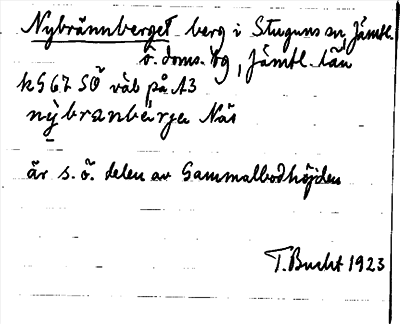 Nybrännberget berg i Stuguns sn, Jämtl.
ö. doms. tg, Jämtl. län
k 567 SÖ väb på A3
nỳbranbärje Näs
är s. ö. delen av Gammalbodhöjden
T. Bucht 1923